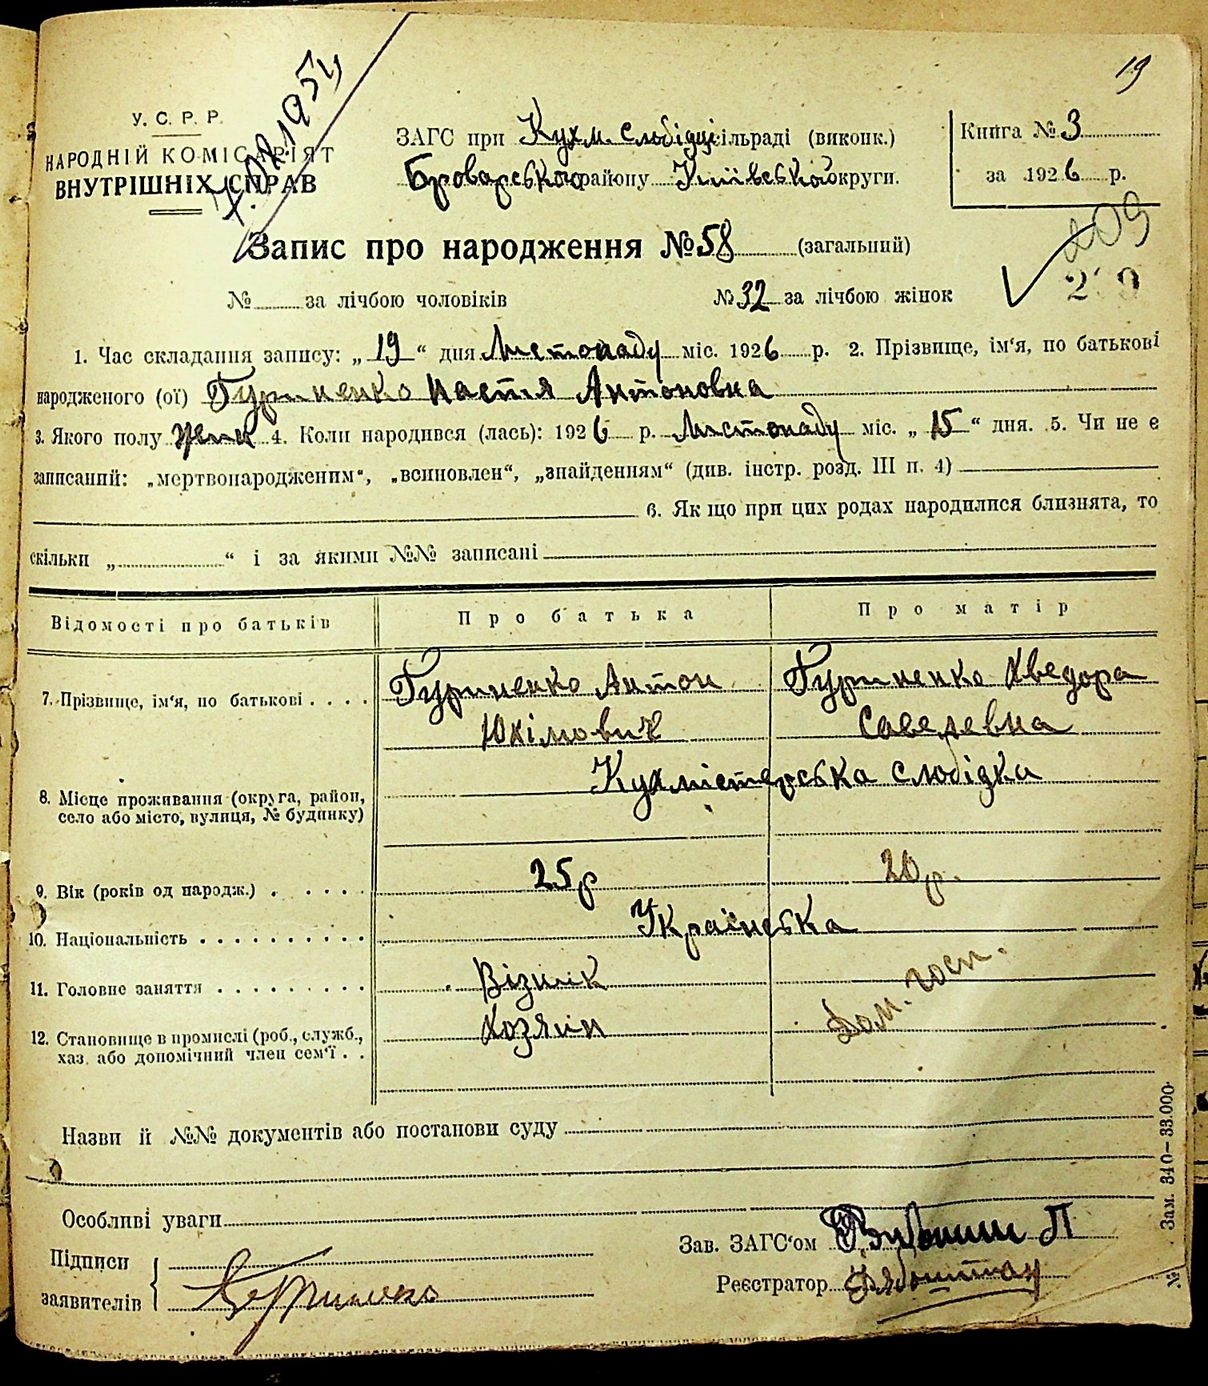 19
У. С. Р. Р.
НАРОДНІЙ КОМІСАРІЯТ
ВНУТРІШНІХ СПРАВ
ЗАГС при Кухм. слобідці сільраді (виконк.)
Броварського району Київської округи.
Книга № 3
за 1926 р.
Запис про народження № 58 (загальний)
209
№ за лічбою чоловіків № 32 за лічбою жінок
1. Час складання запису: „19“ дня Листопаду міс. 1926 р. 2. Прізвище, ім'я, по батькові
народженого (ої) Гуриненко Настя Антоновна
3. Якого полу жін 4. Коли народився (лась): 1926 р. Листопаду міс. „15“ дня. 5. Чи не є
записаний: „мертвонародженим“, „всиновлен“, „знайденням“ (див. інстр. розд. III п. 4)
6. Як що при цих родах народилися близнята, то
скільки „ “ і за якими №№ записані
Відомості про батьків Про батька Про матір
7. Прізвище, ім'я, по батькові . . . . Гуриненко Антон Гуриненко Хведора
Юхімович Савелевна
8. Місце проживання (округа, район,
село або місто, вулиця, № будинку)
Кухмістерська слобідка
9. Вік (років од народж.) . . . . . 25 р 20 р.
10. Національність . . . . . . . . . . Українська
11. Головне заняття . . . . . . . . . Візник Дом. госп.
12. Становище в промислі (роб., служб.,
хаз. або допомічний член сем'ї . .
Хозяін
Назви й №№ документів або постанови суду
Особливі уваги
Підписи
заявителів
Зав. ЗАГС'ом
Реєстратор
Зам. 340—33.000.
№